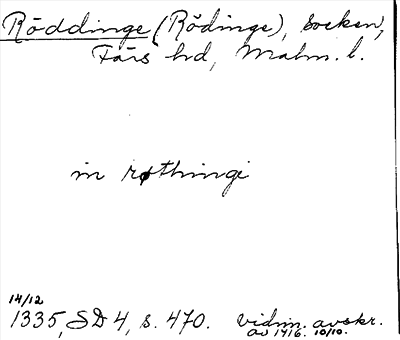 Röddinge (Rödinge), socken,
Färs hd, Malm. l.
in røthingi
14/12
1335, SD 4, s. 470. vidim. avskr.
av 1416. 10/10.